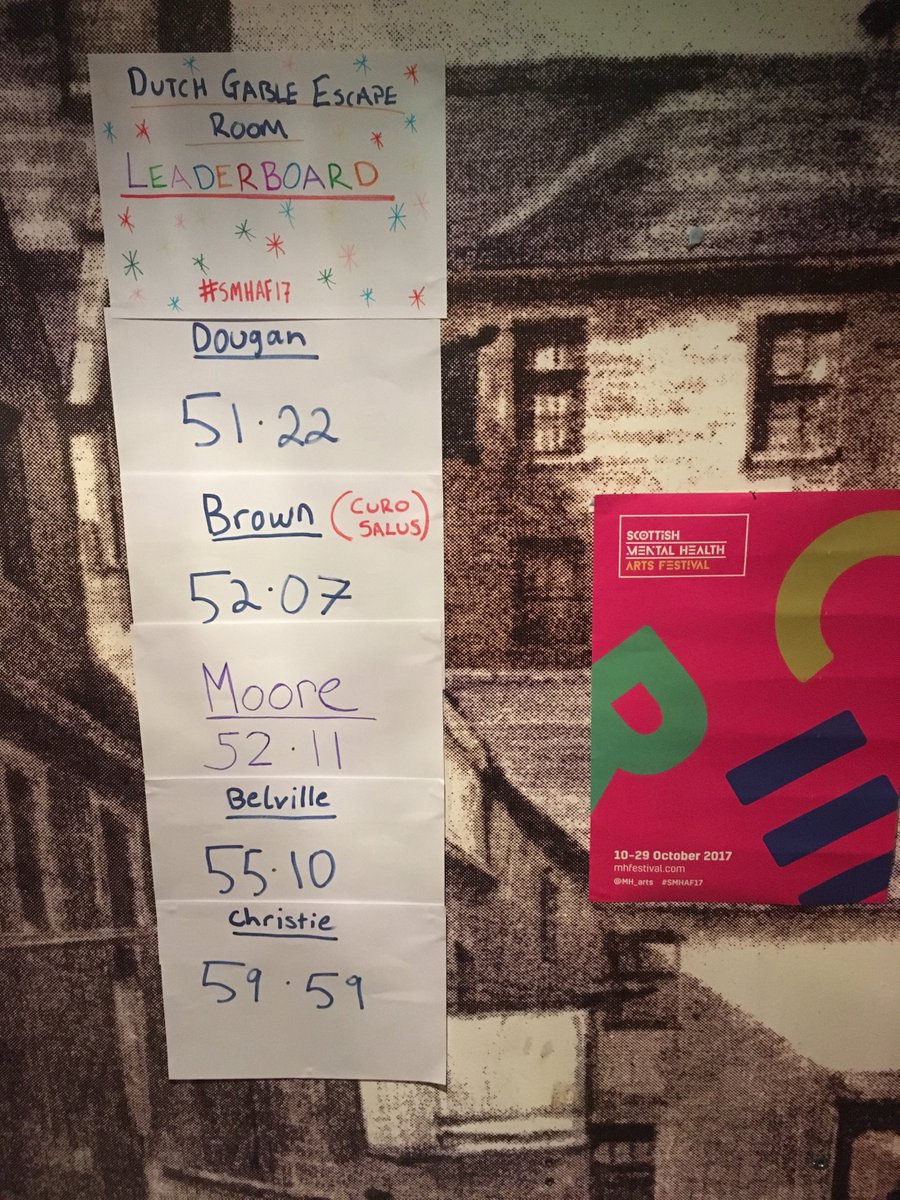 DUTCH GABLE ESCAPE
ROOM
LEADERBOARD
#SMHAF17
Dougan
51.22
Brown (CURO
SALUS)
52.07
Moore
52.11
Belville
55.10
Christie
59.59
SCOTTISH
MENTAL HEALTH
ARTS FESTIVAL
10–29 October 2017
mhfestival.com
@MH_arts #SMHAF17